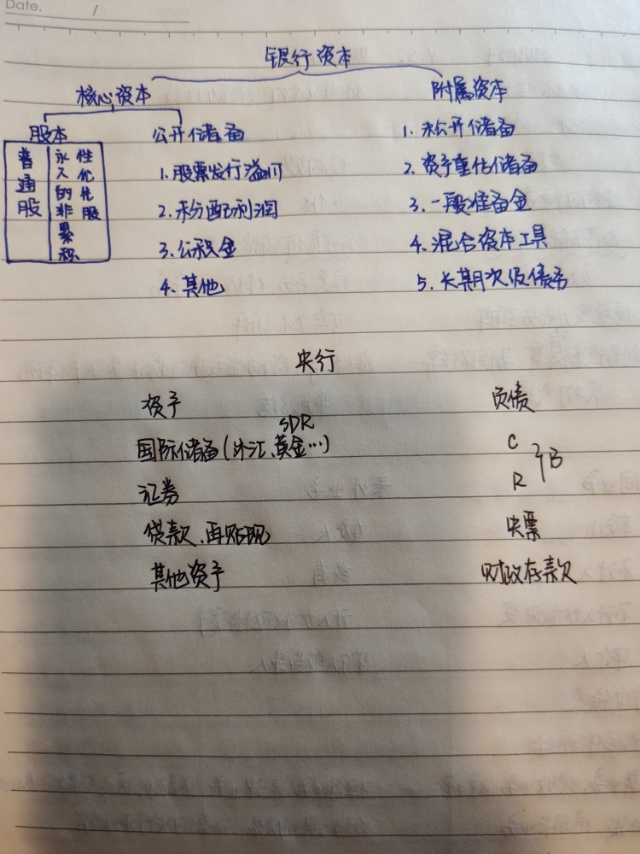 Date. /
银行资本
核心资本 附属资本
股本 公开储备 1. 未公开储备
普通股 永久的非累积 性优化股
1. 股票发行溢价 2. 资产重估储备
2. 未分配利润 3. 一般准备金
3. 公积金 4. 混合资本工具
4. 其他 5. 长期次级债务
央行
资产 负债
SDR
国际储备(外汇、黄金…) C
证券 R }B
贷款、再贴现 央票
其他资产 财政存款